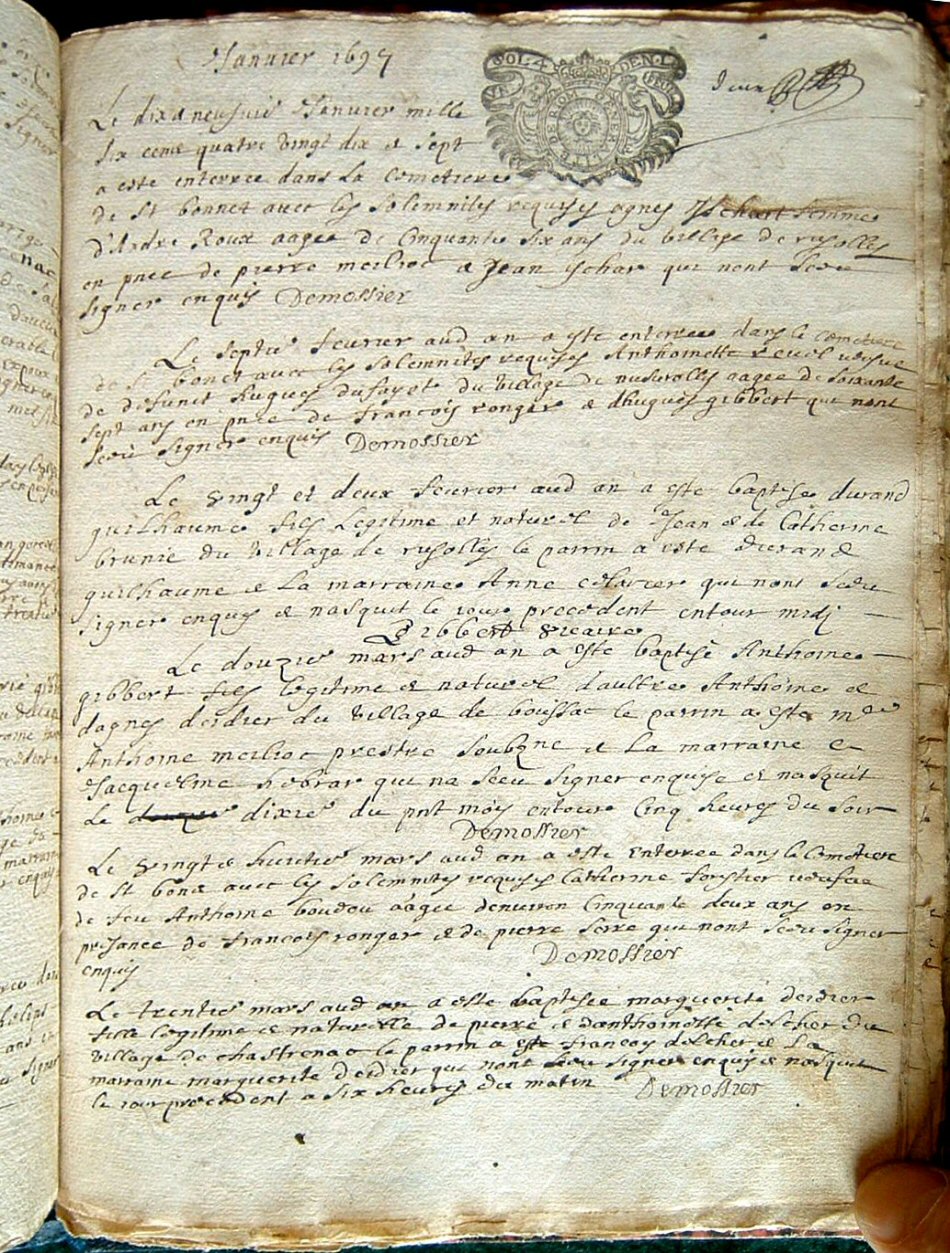 Januier 1697
deux
Le dixneufuie Januier mille
six cens quatre vingt dix et sept
a este enterree dans la cemetiere
de St bonnet auec les solemnites requises agnes Ychart femme
d'Andre Roux aagee de Cinquante six ans du village de rusolles
en pnce de pierre meilioc & Jean ychar qui nont sceu
signer enquis Demossier
Le septie feurier aud an a este enterree dans le cemetiere
de St bonet auec les solemnites requises Anthoinette reuel veufue
de defunct hugues dufayet du village de aagee de soixante
sept ans en pnce de francois ronger & dhugues gibbert qui nont
sceu signer enquis Demossier
Le vingt et deux feurier aud an a este baptise durand
guilhaume fils legitime et naturel de Jean & de Catherine
brunie du village de rusolles le parrin a este durand
guilhaume & la marraine Anne qui nont sceu
signer enquis & nasquit le iour precedent entour midj
Gibbert vicaire
Le douzie mars aud an a este baptisé Anthoine
gibbert fils legitime & naturel daultre Anthoine &
dagnes deidier du village de boissac le parrin a este mre
Anthoine meilioc prestre soubzne & la marraine e
Jacquelme hebrar qui na sceu signer enquise & nasquit
Le douzie dixie du pnt mois entour Cinq heures du soir
Demossier
Le vingt & huictie mars aud an a este enterree dans le cemetiere
de St bone auec les solemnites requises Catherine forestier veufue
de feu Anthoine boudou aagee denuiron Cinquante deux ans en
presance de francois ronger & de pierre serre qui nont sceu signer
enquis Demossier
Le trentie mars aud an a este baptisee marguerite deidier
fille legitime & naturelle de pierre & danthoinette delcher du
village de chastrenac le parrin a este francois delcher & la
marraine marguerite deidier qui nont sceu signer enquis & nasquit
le iour precedent a six heures du matin Demossier